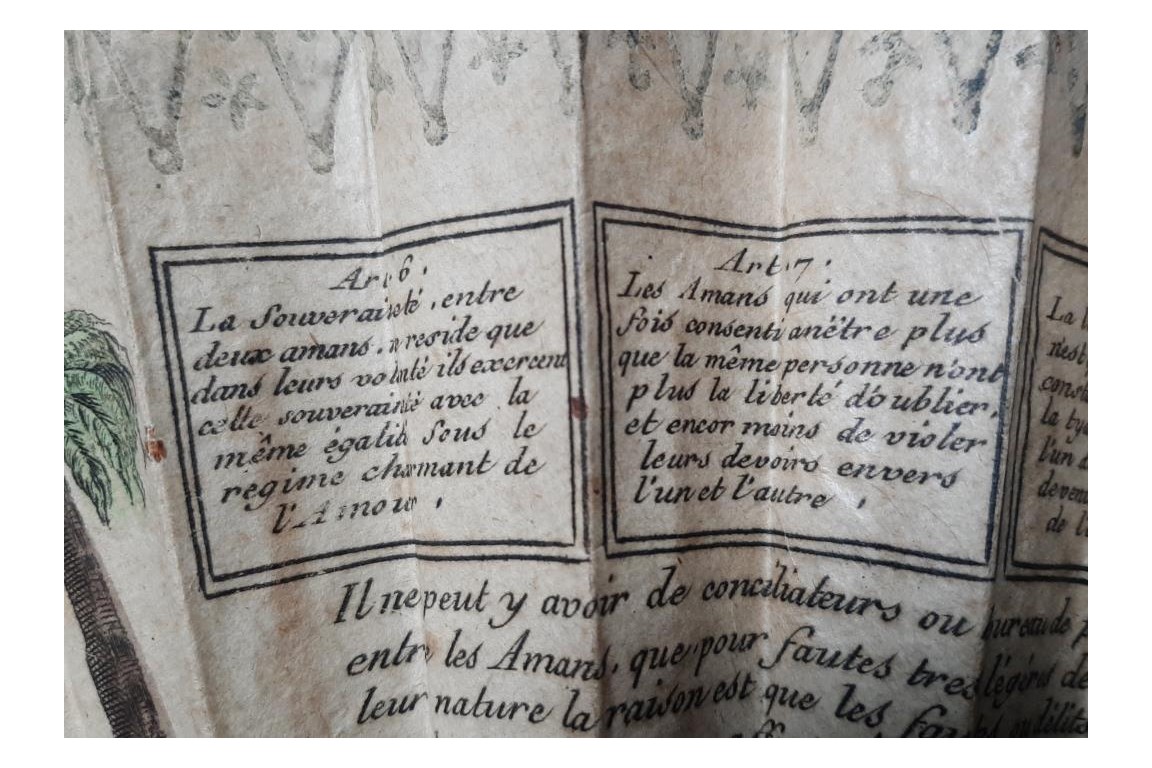 Art 6.
La Souveraineté, entre
deux amans, n reside que
dans leurs volonté ils exercent
cette souverainté avec la
même égalité sous le
regime charmant de
l'Amour.
Art 7.
Les Amans qui ont une
fois consenti anêtre plus
que la même personne n'ont
plus la liberté d'oublier,
et encor moins de violer
leurs devoirs envers
l'un et l'autre,
La
n'est
const
la ty
l'un
deven
de l
Il ne peut y avoir de conciliateurs ou bureau de p
entre les Amans, que pour fautes tres légéres de
leur nature la raison est que les fautes ou délits